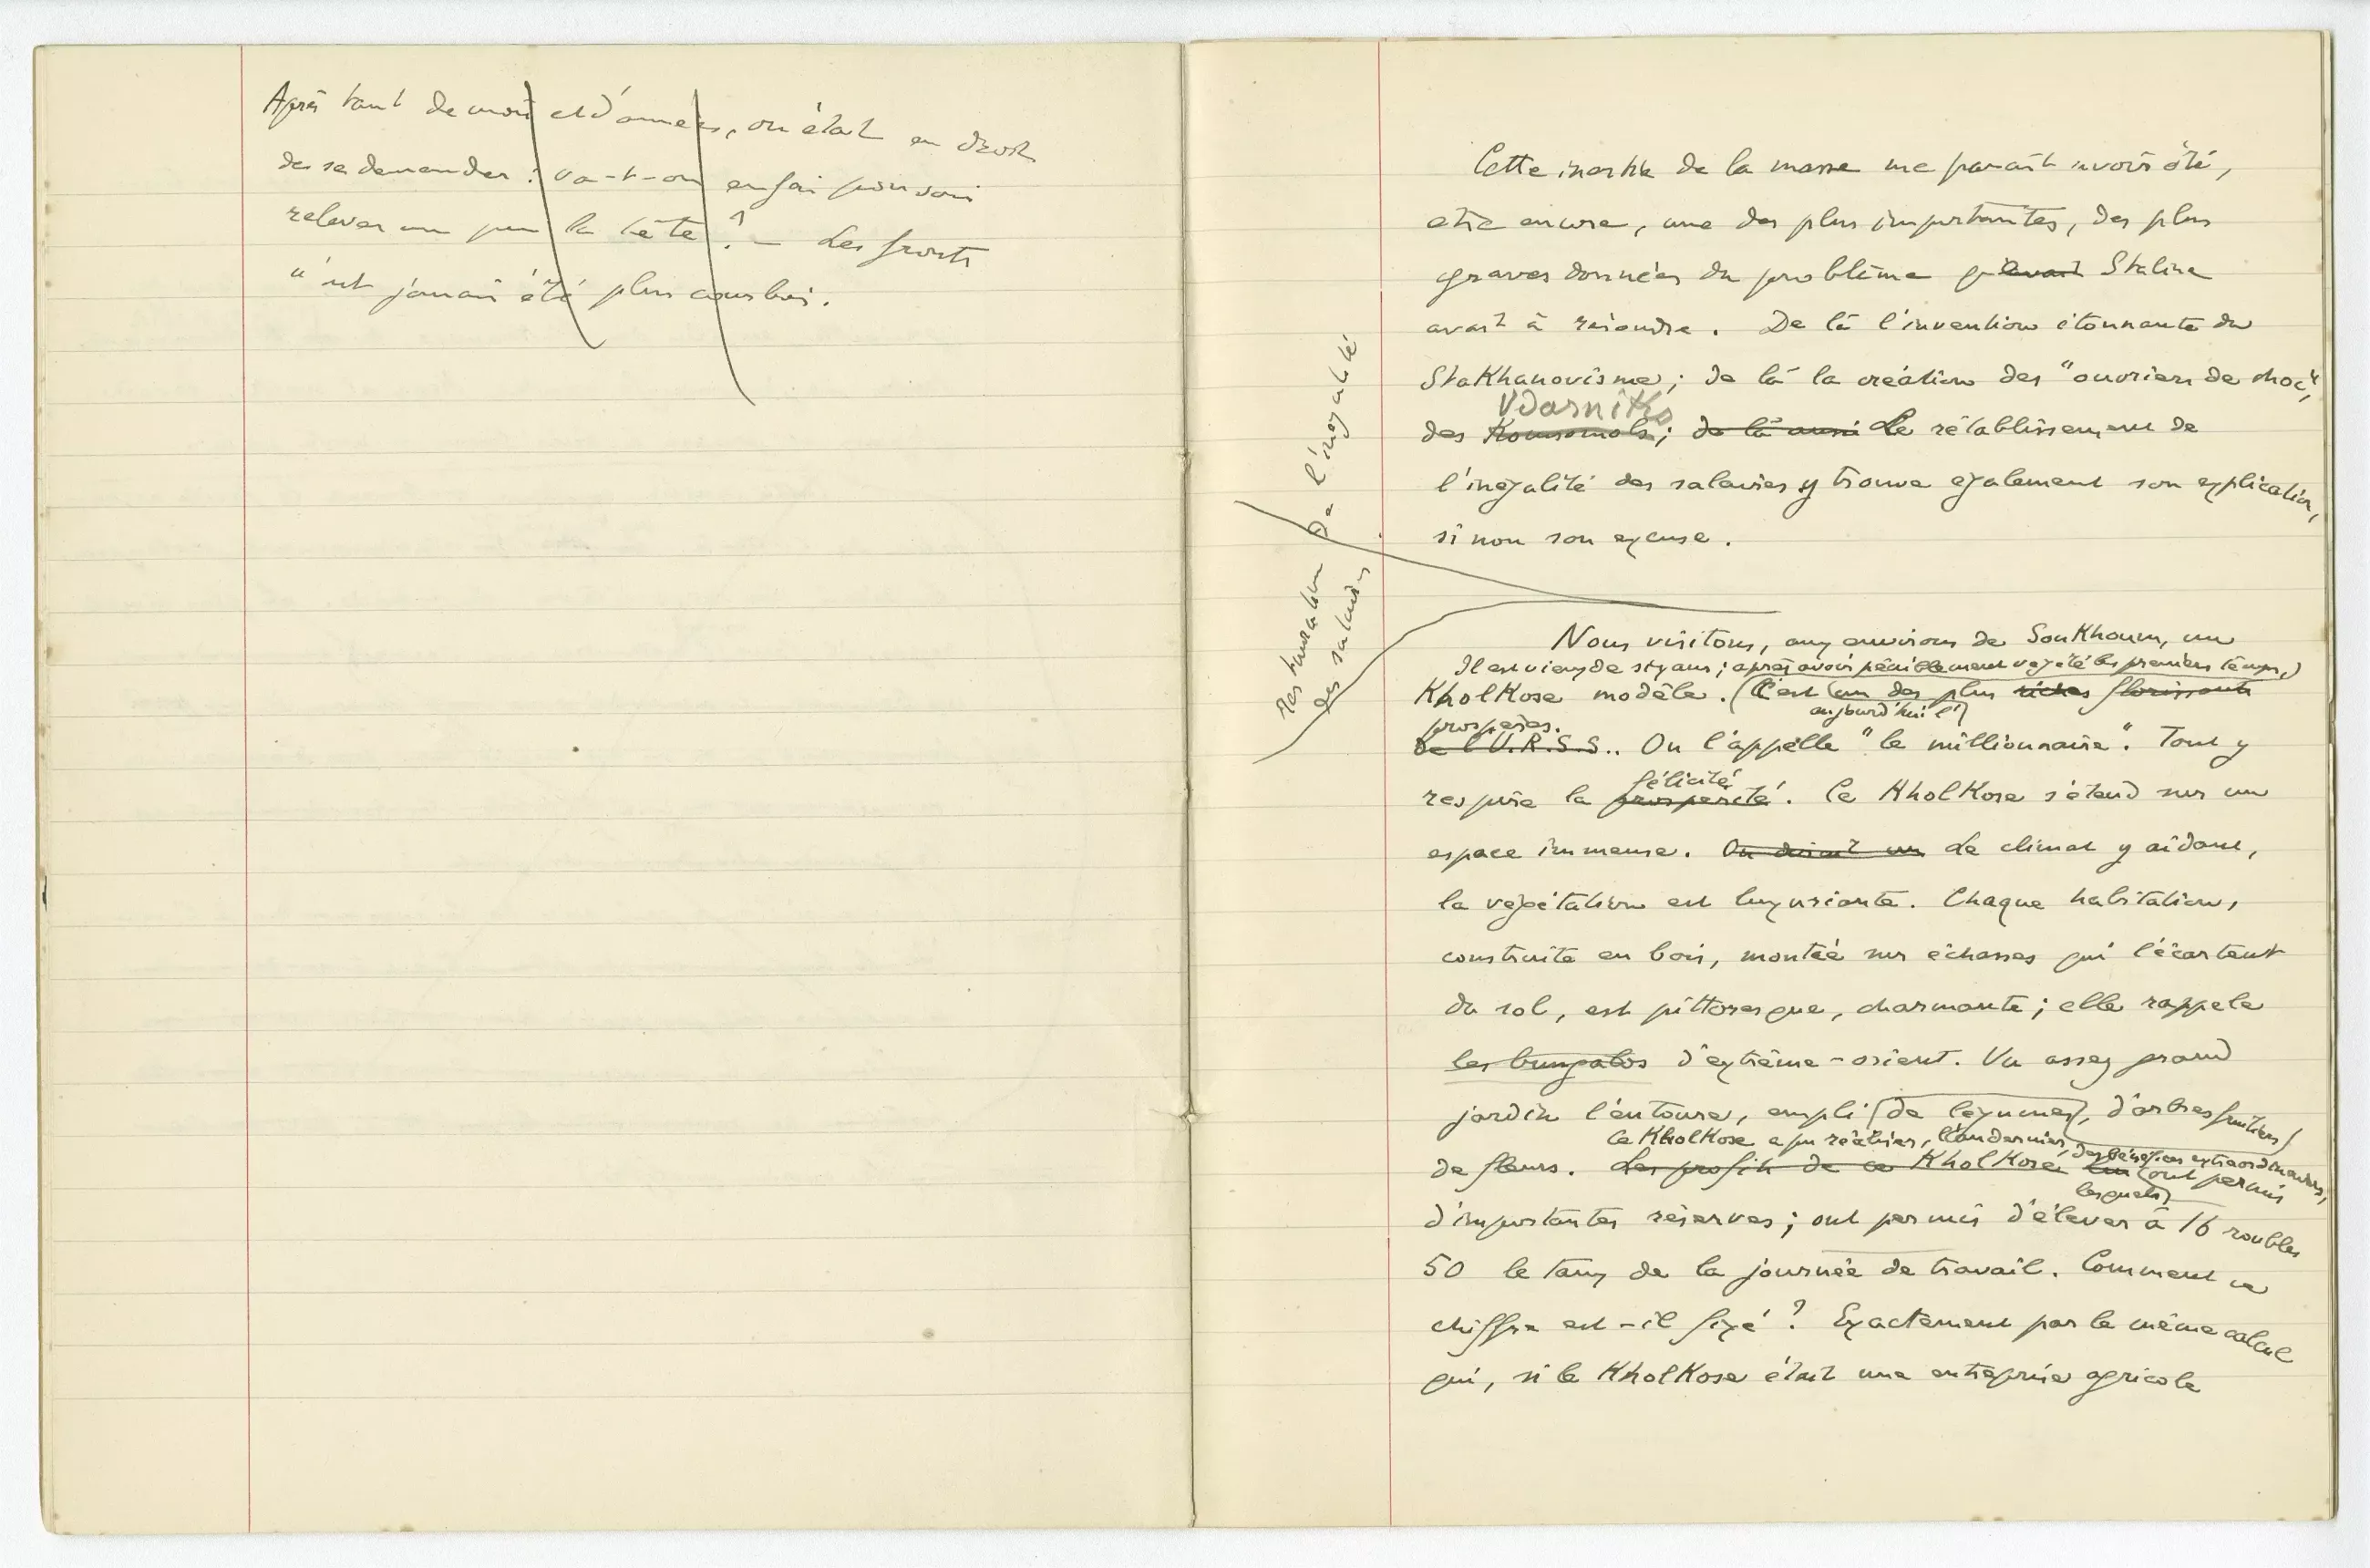 Après tant de mois et d'années, on était en droit
de se demander : va-t-on enfin pouvoir
relever un peu la tête ? — Les fronts
n'ont jamais été plus courbés.
Restauration de l'inégalité
des salaires
Cette inertie de la masse me paraît avoir été,
être encore, une des plus importantes, des plus
graves données du problème qu'avait Staline
avait à résoudre. De là l'invention étonnante du
StaKhanovisme; de là la création des "ouvriers de choc",
Udarniks
des Komsomols; de là aussi Le rétablissement de
l'inégalité des salaires y trouve également son explication,
sinon son excuse.
Nous visitons, aux environs de SouKhoum, un
Il est vieux de six ans; après avoir péniblement végété les premiers temps,
KholKose modèle. C'est un des plus riches florissants
aujourd'hui l'
prospères.
de l'U.R.S.S.. On l'appelle "le millionnaire". Tout y
félicité
respire la prospérité. Ce KholKose s'étend sur un
espace immense. On dirait un Le climat y aidant,
la végétation est luxuriante. Chaque habitation,
construite en bois, montée sur échasses qui l'écartent
du sol, est pittoresque, charmante; elle rappele
les bungalos d'extrême-orient. Un assez grand
jardin l'entoure, empli de légumes, d'arbres fruitiers
Ce KholKose a pu réaliser, l'an dernier, des bénéfices extraordinaires,
de fleurs. Les profits de ce KholKose lui ont permis
lesquels
d'importantes réserves; ont permis d'élever à 16 roubles
50 le taux de la journée de travail. Comment ce
chiffre est-il fixé ? Exactement par le même calcul
qui, si le KholKose était une entreprise agricole